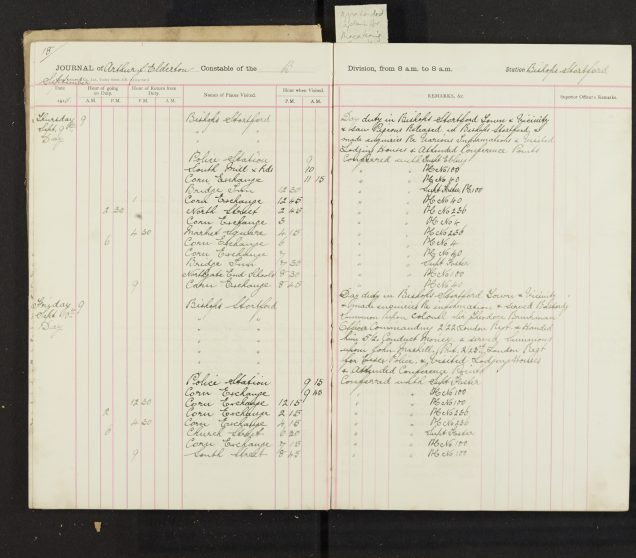 18
JOURNAL of Arthur J. Elderton Constable of the B Division, from 8 a.m. to 8 a.m. Station Bishops Stortford
September
Date Hour of going on Duty. Hour of Return from Duty. Names of Places Visited. Hour when Visited. REMARKS, &c. Superior Officer's Remarks.
A.M. P.M. A.M. P.M. P.M. A.M.
Thursday 9 Bishops Stortford Day duty in Bishops Stortford Town & Vicinity
Sept 9th " & saw Pigeons Released at Bishops Stortford, &
Day " made enquiries re Various Informations & visited
" Lodging Houses & Attended Conference Points
Police Station 9 Conferred with Supt
South Mill Rd 10 " " PC No 100
Corn Exchange 11 15 " " PC No 40
Bridge Inn 12 30 " " Supt Foster PC 100
1 Corn Exchange 12 45 " " PC No 40
2 30 North Street 2 45 " " PC No 236
Corn Exchange 3 " " PC No 4
4 30 Market Square 4 15 " " PC No 236
6 Corn Exchange 6 " " PC No 4
Corn Exchange 7 " " PC No 40
Bridge Inn 7 30 " " Supt Foster
Northgate End 8 30 " " PC No 100
9 Corn Exchange 8 45 " " PC No 40
Friday 9 Bishops Stortford Day duty in Bishops Stortford Town & Vicinity
Sept 10th " & made enquiries re & served
Day " Summon upon Colonel Sir Theodore
" Officer Commanding 2/22 London Regt & Handed
" him 5/2 Conduct Money. & served Summons
" upon John London Regt
" for Essex Police. & Visited Lodging Houses
" & Attended Conference Points
Police Station 9 15 Conferred with Supt Foster
Corn Exchange 9 45 " " PC No 100
12 30 Corn Exchange 12 15 " " PC No 100
2 Corn Exchange 2 15 " " PC No 236
4 30 Corn Exchange 4 15 " " PC No 236
6 Church Street 6 30 " " Supt Foster
Corn Exchange 7 15 " " PC No 100
9 South Street 8 45 " " PC No 100